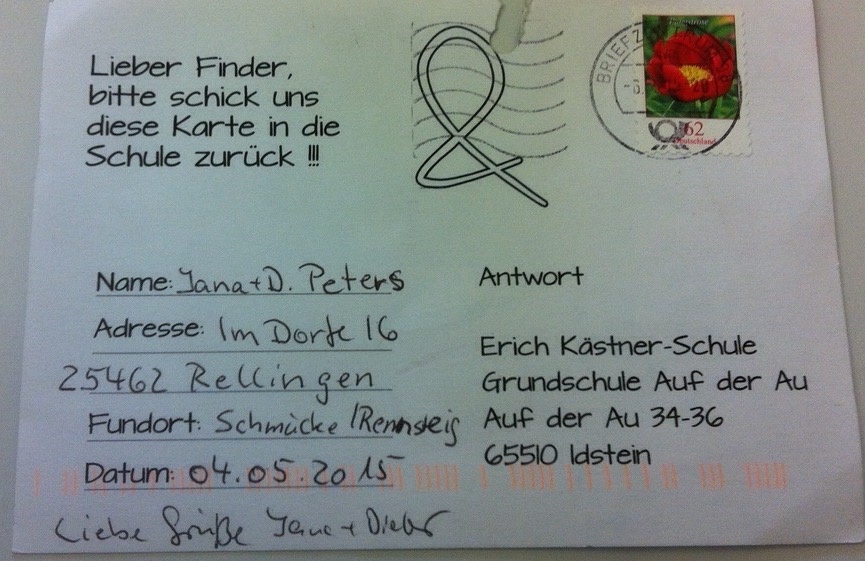 Lieber Finder,
bitte schick uns
diese Karte in die
Schule zurück !!!
BRIEFZ
62
Deutschland
Name: Jana + D. Peters
Adresse: Im Dorfe 16
25462 Rellingen
Fundort: Schmücke /Rennsteig
Datum: 04.05.2015
Liebe Grüße Jana + Dieter
Antwort
Erich Kästner-Schule
Grundschule Auf der Au
Auf der Au 34-36
65510 Idstein